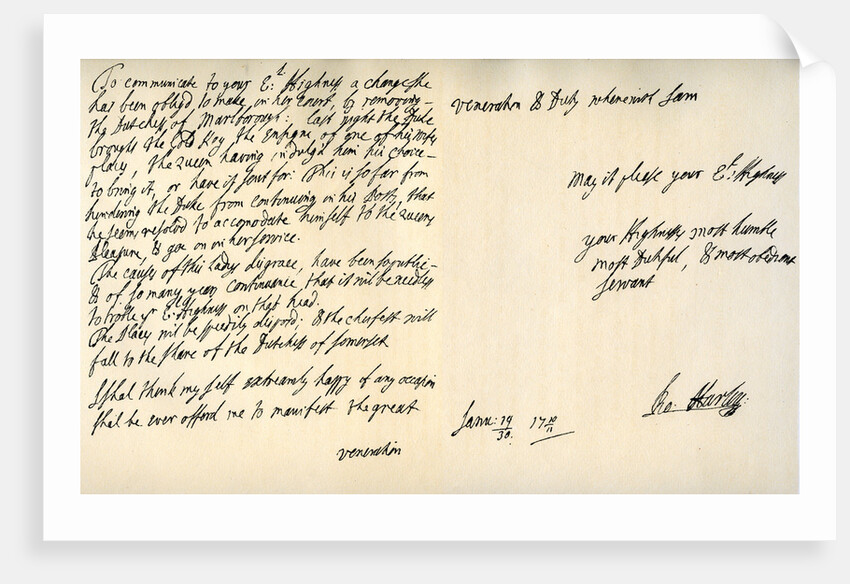 To communicate to your E:t Highness a change she
has been obligd, to make, in her Court, by removeing
the Dutchess of Marlborough: last night the Duke
brought the Gold Key, the Ensigne of one of his Wifes
places, the Queen having indulg'd him his choice
to bring it, or have it sent for: This is so far from
hindering the Duke from continuing in his Posts, that
he seems resolvd to accomodate himself to the Queens
Pleasure, & goe on in her service.
The causes of this Ladys disgrace, have been so publick
& of so many years continuance, that it wil be needless
to troble yr El: Highness on that head.
The Places wil be speedily disposd; & the cheifest will
fall to the share of the Dutchess of Somerset
I shal think my self extreamly happy if any occasion
shal be ever afford me to manifest the great
veneration
Veneration & Duty wherewith I am
May it please your E:t Highness
your Highness's most humble
most Dutiful, & most obedient
servant
Ro. Harley:
Janu: 19/30. 17 10/11